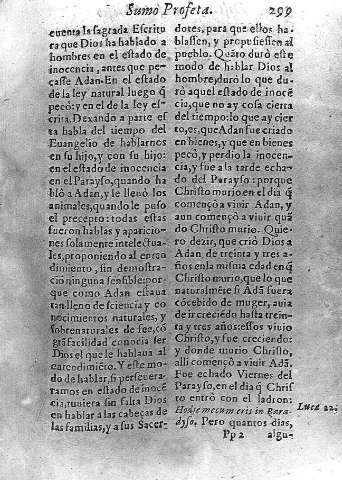 Sumo Profeta. 299
cuenta la sagrada Escritu
ra que Dios ha hablado a
hombres en el estado de
inocencia, antes que pe-
casse Adan-En el estado
de la ley natural luego q̃
pecò: y en el de la ley es-
crita. Dexando a parte es
ta habla del tiempo del
Euangelio de hablarnos
en su hijo, y con su hijo:
en el estado de inocencia
en el Parayso, quando ha
blò a Adan, y le lleuò los
animales, quando le puso
el precepto: todas estas
fueron hablas y aparicio-
nes solamente intelectua-
les, proponiendo al enten
dimiento, sin demostra-
ciò ninguna sensible: por
que como Adan estaua
tan lleno de sciencia y co
nocimientos naturales, y
sobrenaturales de fee, cõ
grã facilidad conocia ser
Dios el que le hablaua al
entẽdimiẽto. Y este mo-
do de hablar, si perseuera
ramos en estado de inocẽ
cia, tuuiera sin falta Dios
en hablar a las cabeças de
las familias, y a sus Sacer-
dotes, para que ellos ha-
blassen, y propusiessen al
pueblo. Quãto durò este
modo de hablar Dios al
hombre, durò lo que du-
rò aquel estado de inocẽ
cia, que no ay cosa cierta
del tiempo: lo que ay cier
to, es, que Adan fue criado
en bienes, y que en bienes
pecò, y perdio la inocen-
cia, y fue a la tarde echa-
do del Parayso: porque
Christo murio en el dia q̃
començò a viuir Adan, y
aun començò a viuir quã
do Christo murio. Quie-
ro dezir, que criò Dios a
Adan de treinta y tres a-
ños en la misma edad en q̃
Christo murio, que lo que
naturalmẽte si Adã fuera
cõcebido de muger, auia
de ir creciẽdo hasta trein-
ta y tres años: essos viuio
Christo, y fue creciendo:
y donde murio Christo,
alli començò a viuir Adã.
Fue echado Viernes del
Parayso, en el dia q̃ Chris
to entrò con el ladron:
Hodie mecum eris in Para- Luca 22.
dyso, Pero quantos dias,
Pp 2 algu-